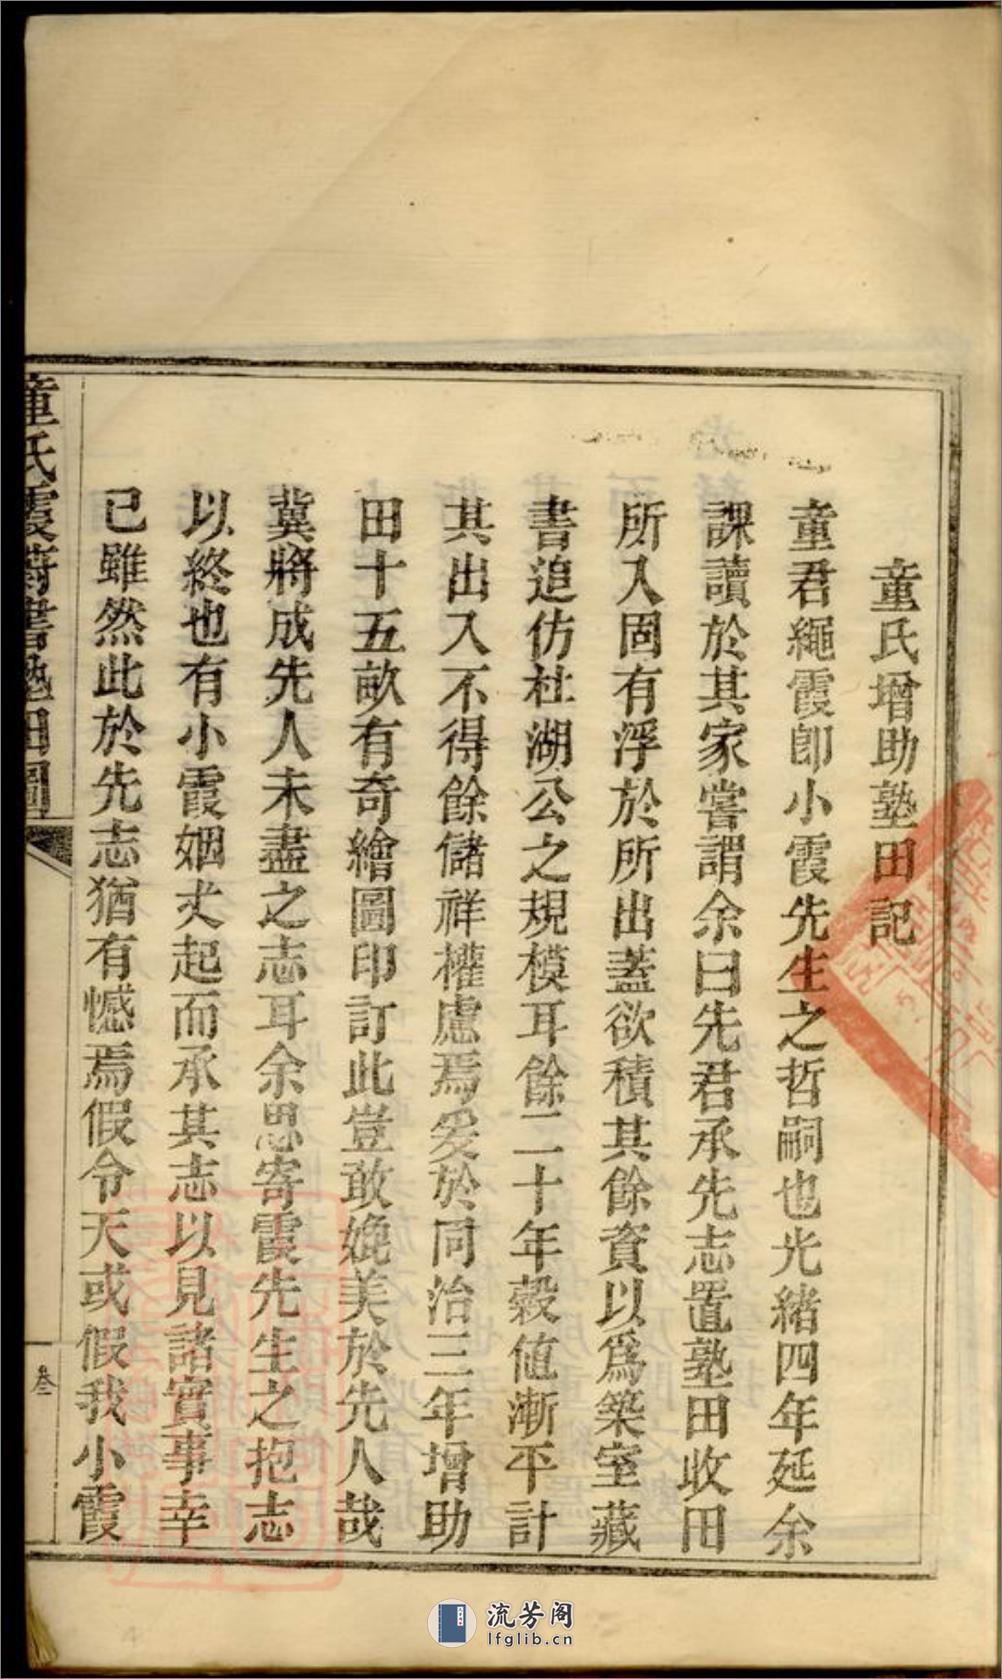 童氏增助塾田記
童君繩霞卽小霞先生之哲嗣也光緒四年延余
課讀於其家嘗謂余曰先君承先志置塾田收田
所入固有浮於所出蓋欲積其餘資以爲築室藏
書追仿杜湖公之規模耳餘二十年穀値漸平計
其出入不得餘儲祥權慮焉爰於同治三年增助
田十五畝有奇繪圖印訂此豈敢媲美於先人哉
冀將成先人未盡之志耳余思寄霞先生之抱志
以終也有小霞姻丈起而承其志以見諸實事幸
已雖然此於先志猶有憾焉假令天或假我小霞
童氏霞蔚書塾田圖
叁
流芳阁
lfglib.cn